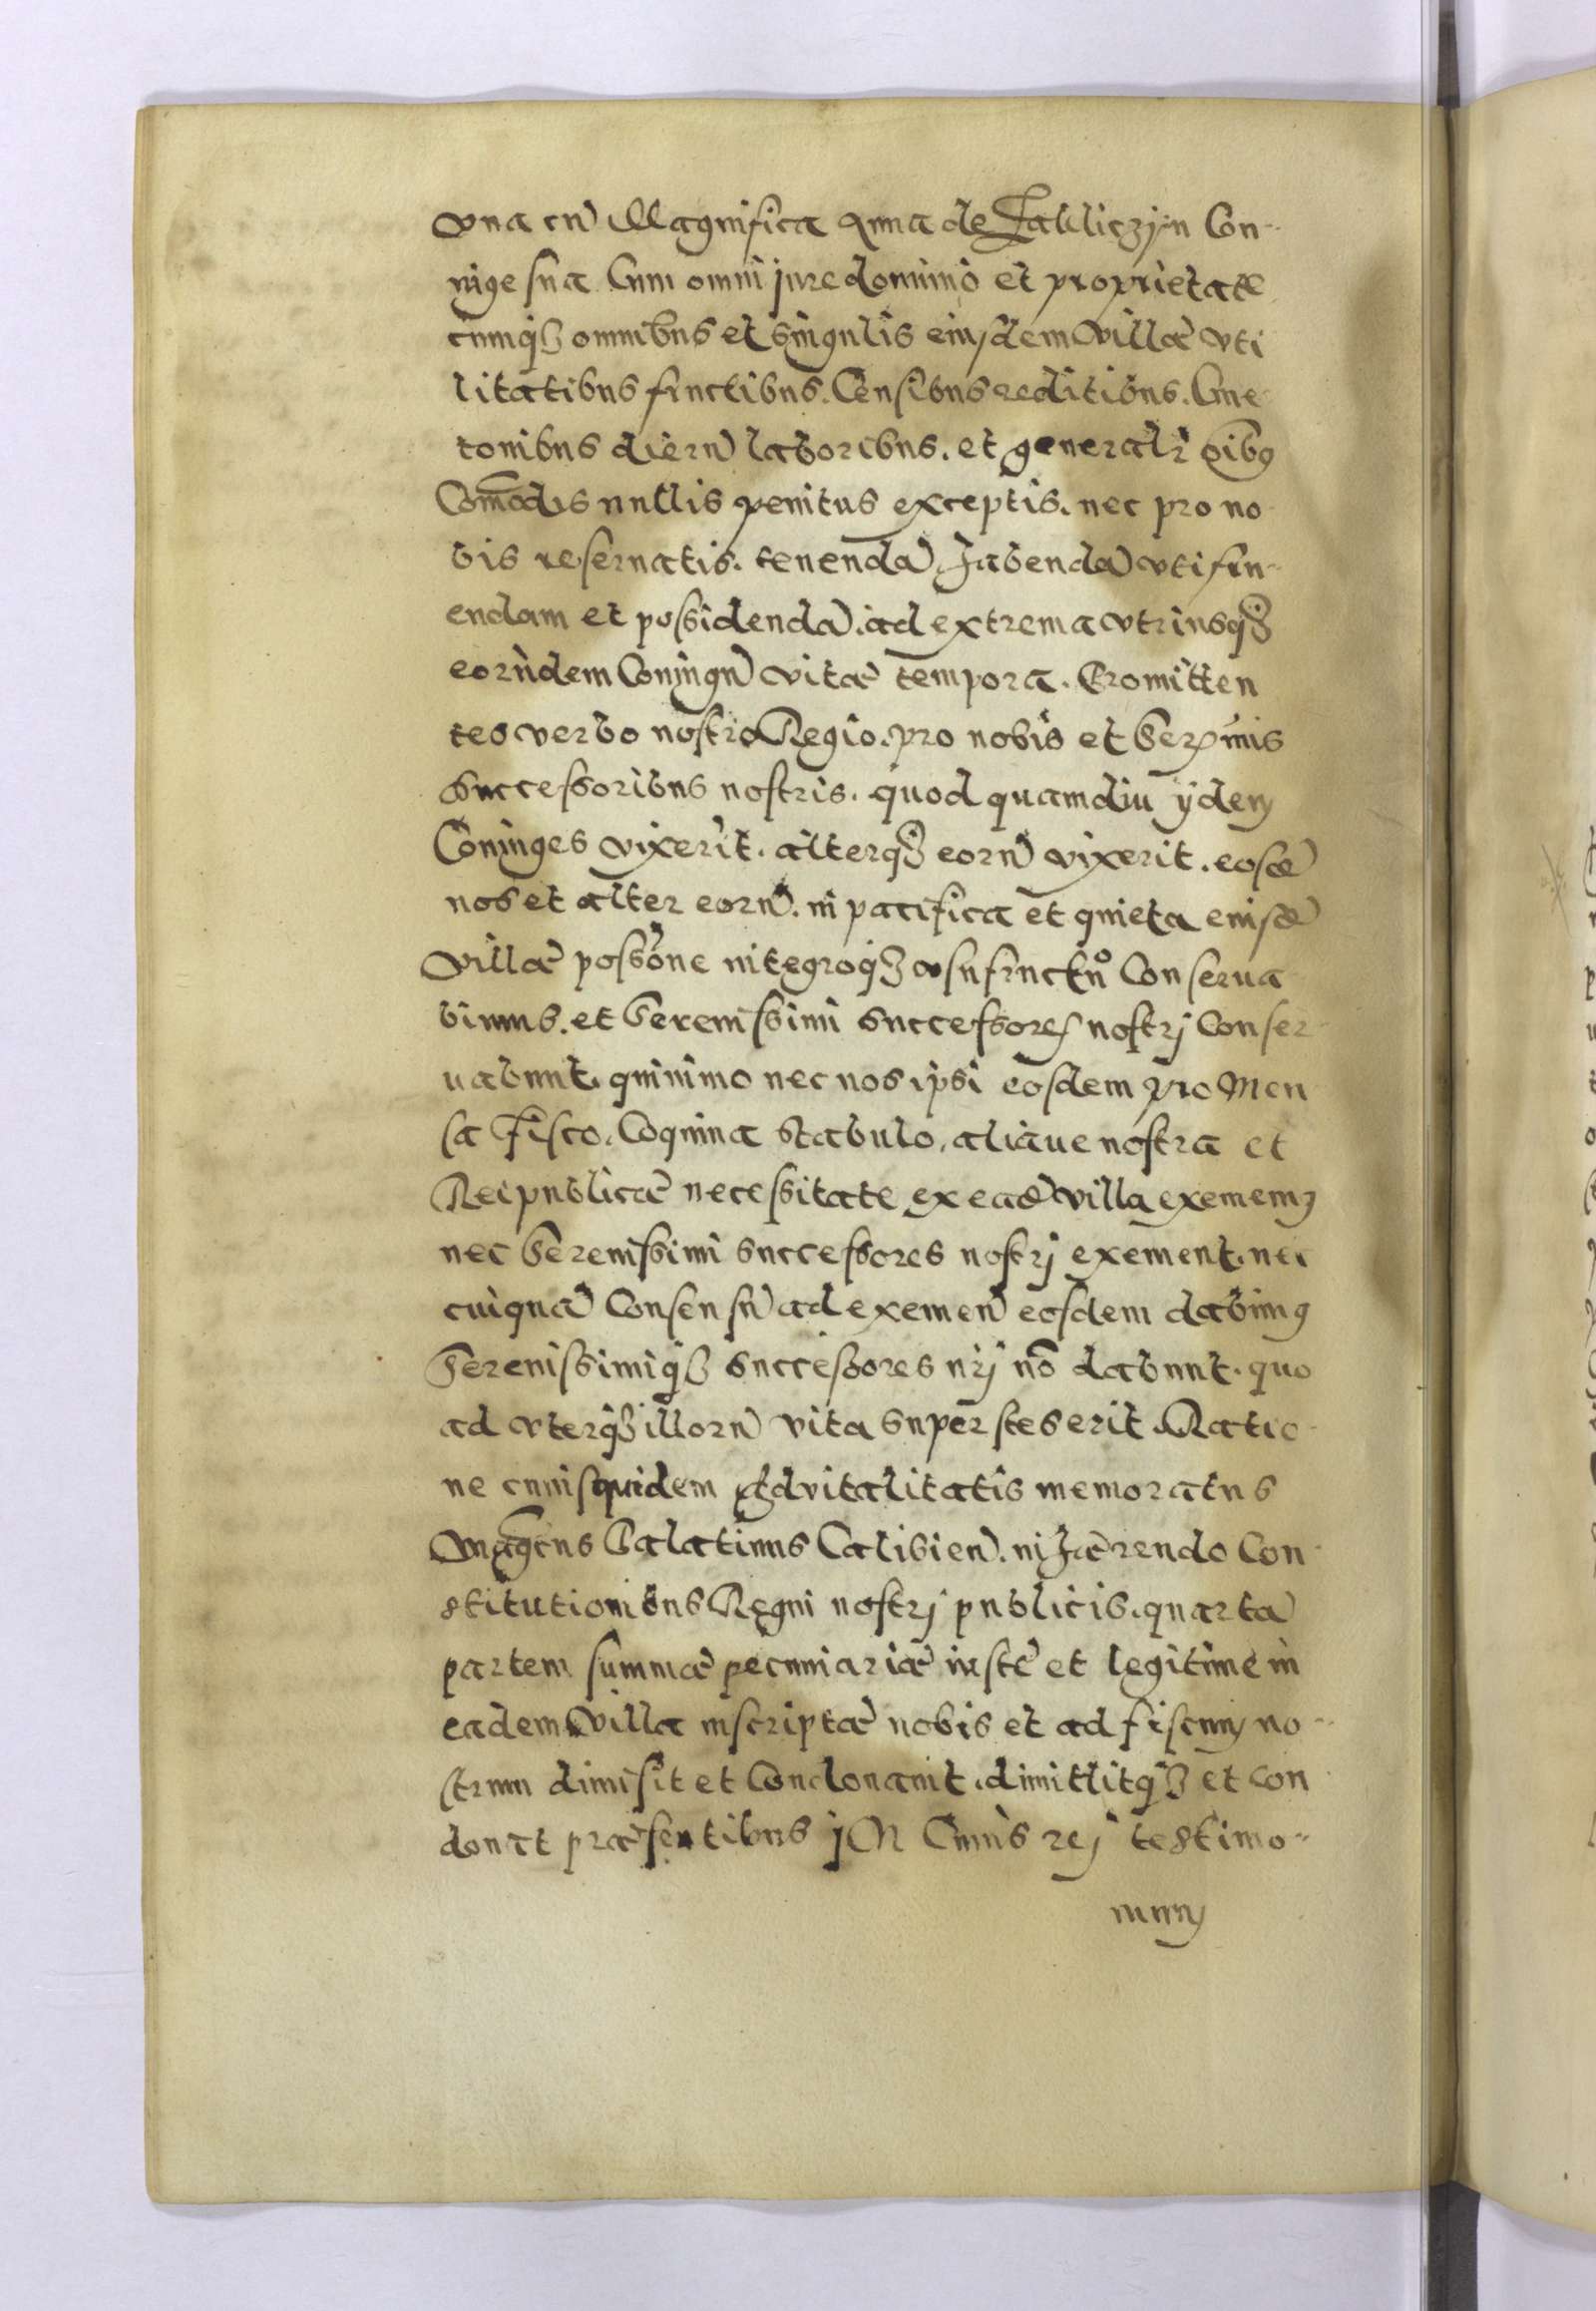 vna cū Magnifica Anna de Jabliczyn Con-
iuge sua Cum omni jure dominio et proprietate
cumqȝ omnibus et singulis eiusdem Villæ vti
litatibus fructibus. Censibus reditibus. Cme
tonibus dierū laboribus. et generalr̄ oībꝰ
Com̄odis nullis penitus exceptis. nec pro no
bis reseruatis. tenendā habendā vtifru-
endam et possidendā. ad extrema vtriusqȝ
eorundem Coniugū vitæ tempora. Promitten
tes verbo nostro Regio. pro nobis et Seren̄mis
Successoribus nostris. quod quamdiu ijdem
Coniuges vixerīt. alterqȝ eorū vixerit. eosdē
nos et alter eorū. in pacifica et quieta eiusdē
Villæ possōne integroqȝ vsufructu Conserua
bimus. et Serenissimi successores nostrj conser
uabunt. quinimo nec nos ipsi eosdem pro Men
sa Fisco. Coquina stabulo. aliaue nostra et
Reipublicæ necessitate ex eadē villa exememꝰ
nec Serenissimi successores nostrj exement. nec
cuiquā Consensū ad exemen̄ eosdem dabimꝰ
Serenissimiqȝ successores nrj nō dabunt. quo
ad vterqȝ illorū vita superstes erit. Ratio-
ne cuiusquidem Aduitalitatis memoratus
Magcus Palatinus Calisien̄. inhærendo Con
stitutionibus Regni nostrj publicis. quartā
partem summæ pecuniariæ iustè et legitimè in
eadem Villa inscriptæ nobis et ad fiscum no-
strum dimisit et Condonauit. dimittitqȝ et con
donat præsentibus jN Cuius rej testimo-
nium